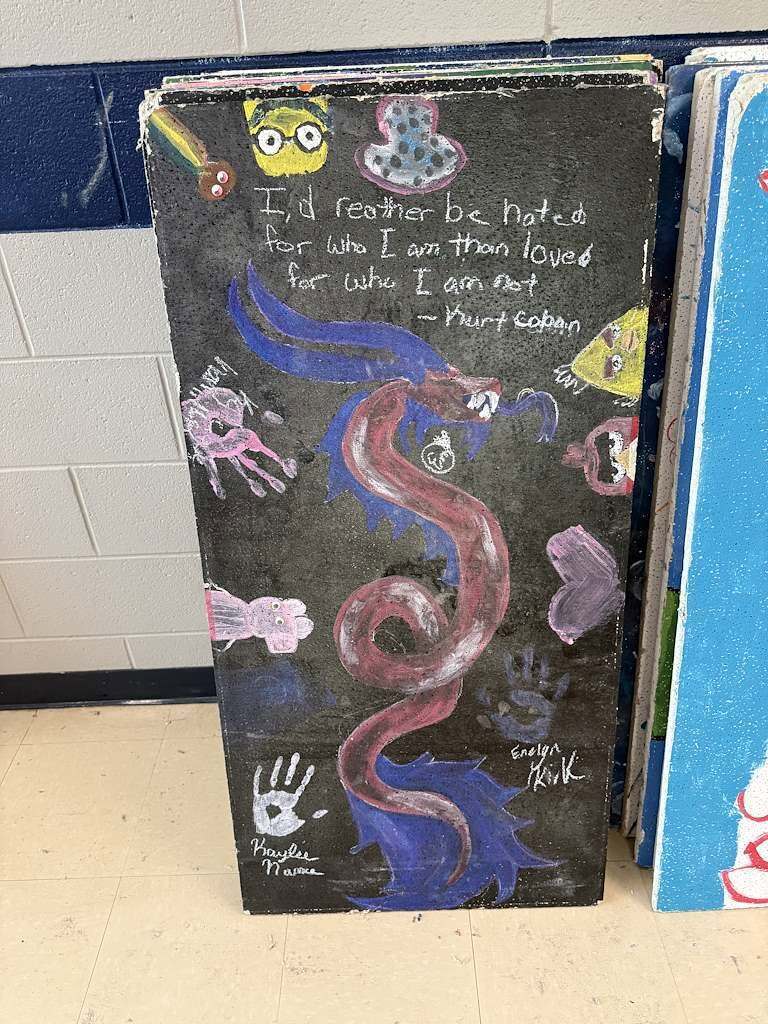 I,d reather be hated
for who I am than loved
for who I am not
- Kurt coban
Kaylee